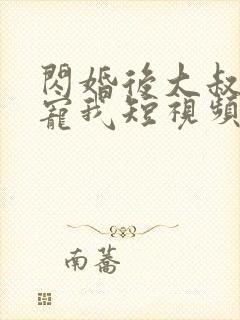 閃婚後大叔
寵我短視頻
南蕎